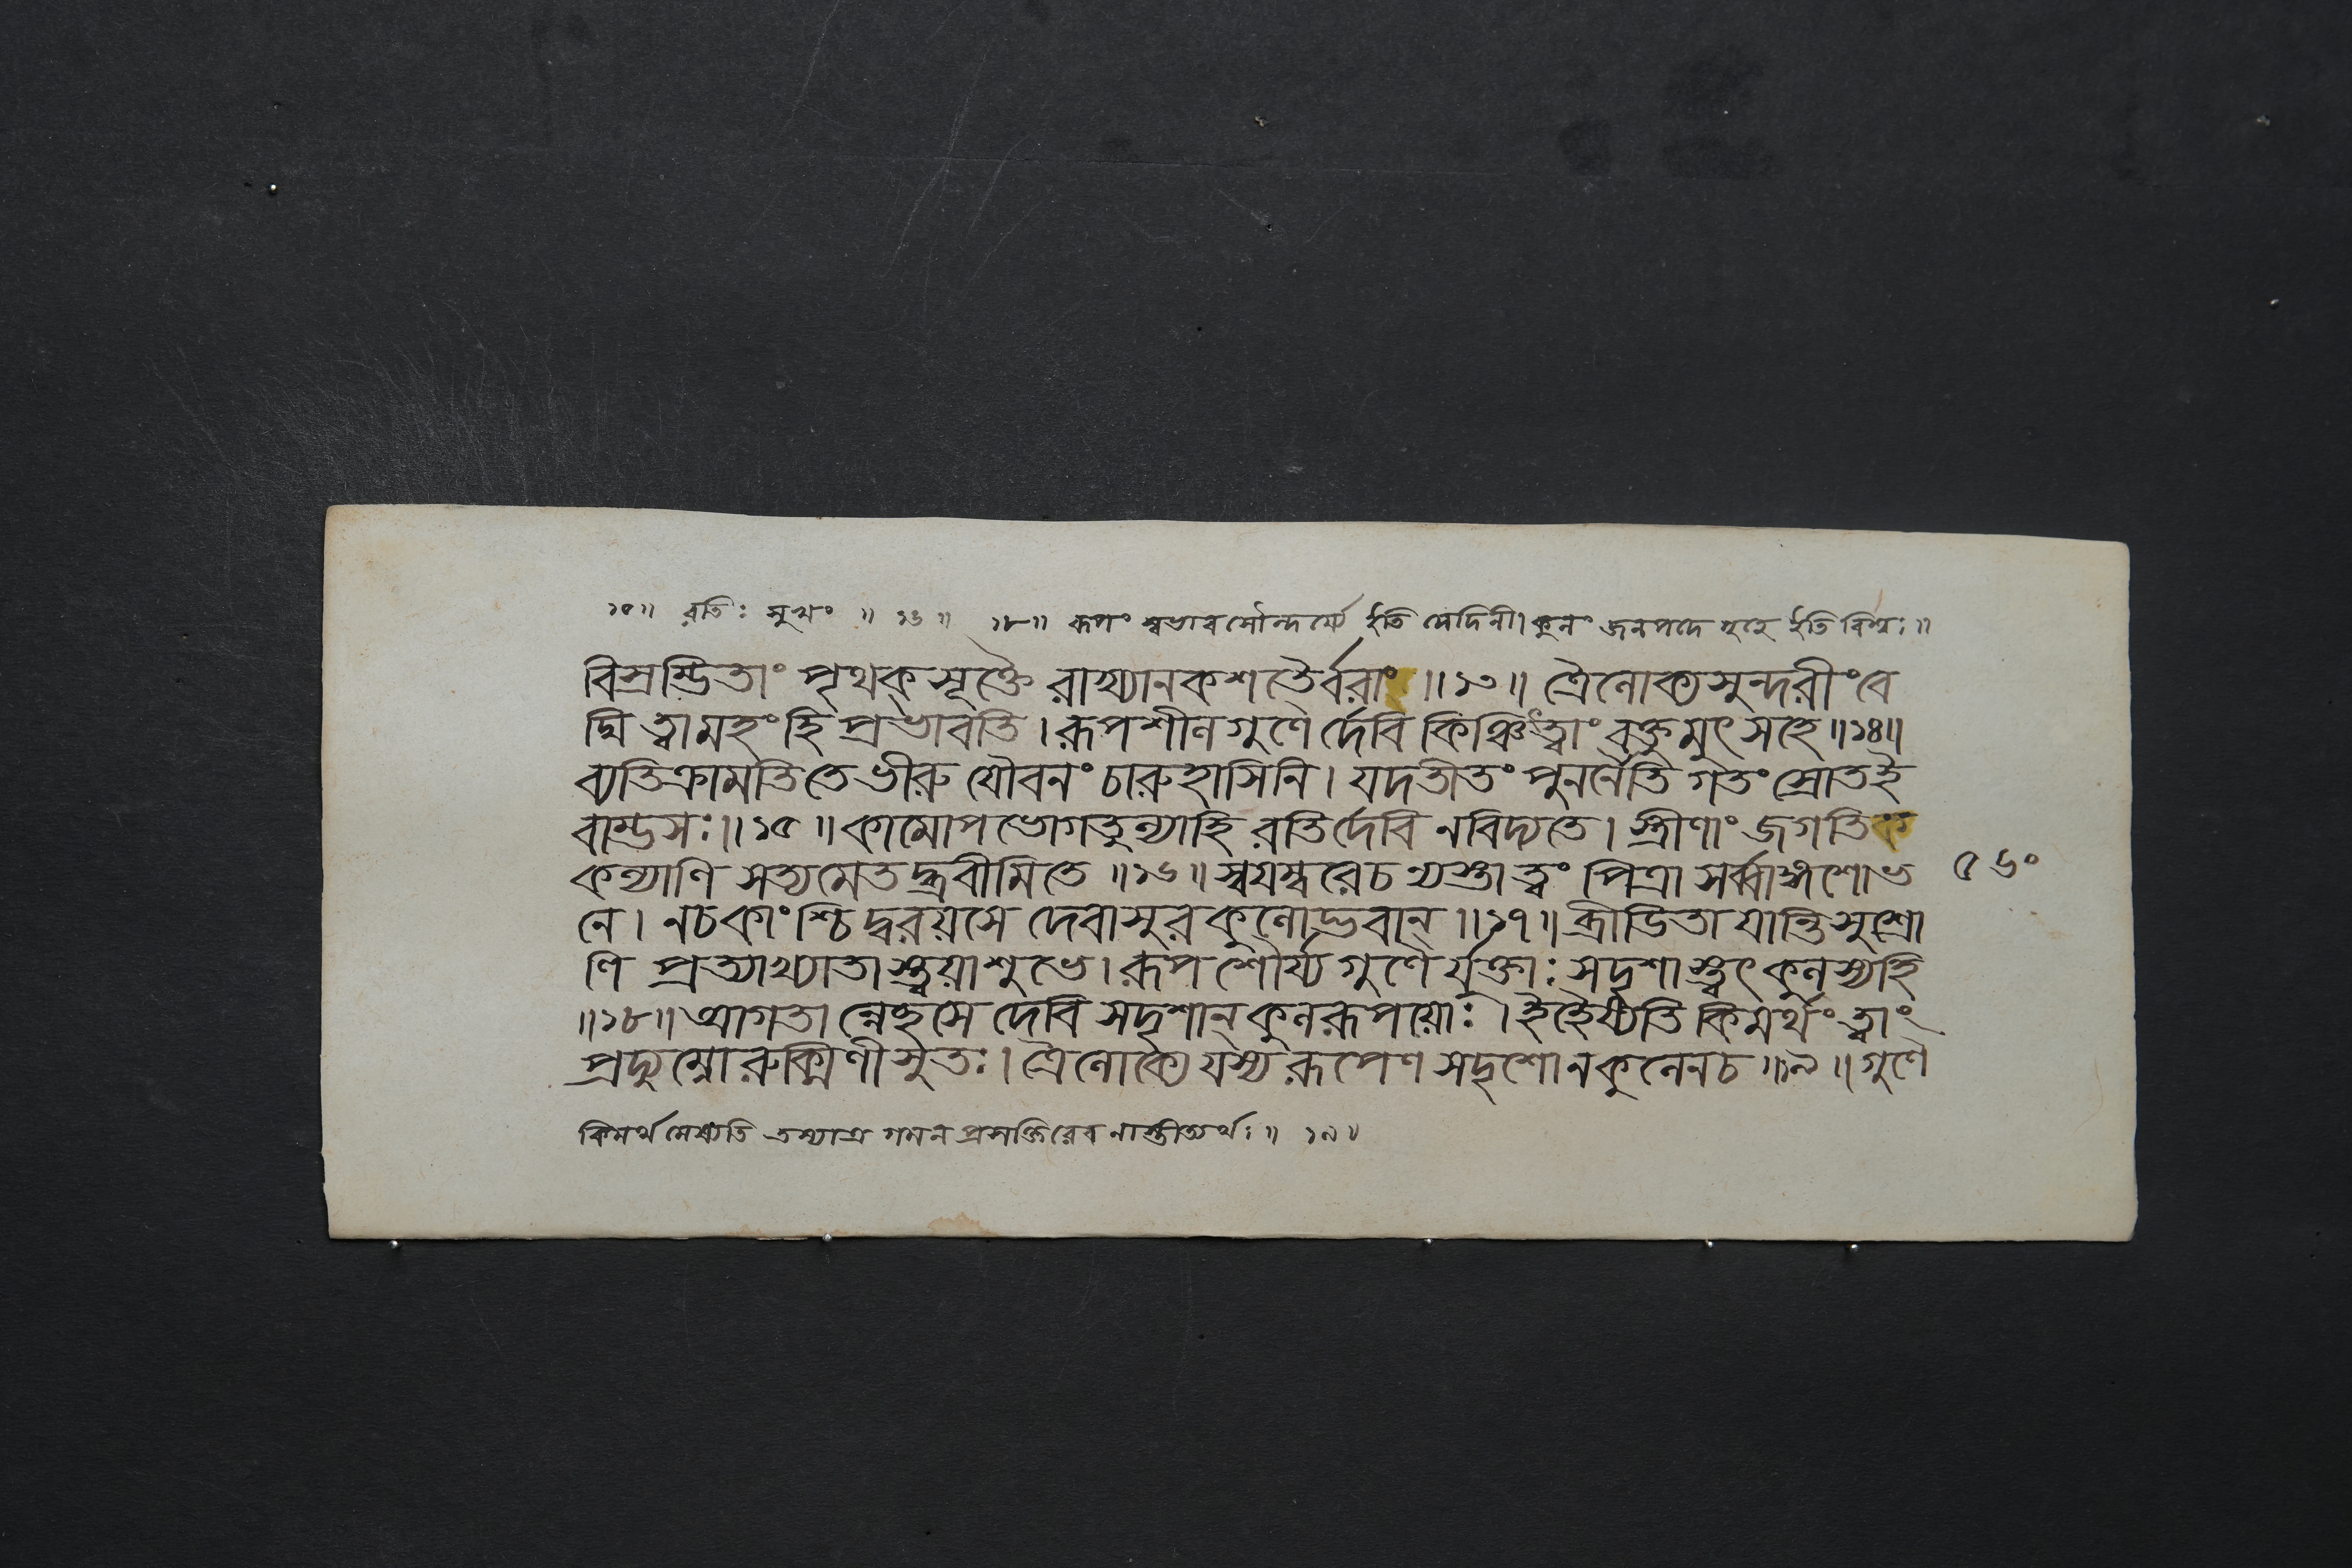 ১৫॥ রতিঃ সুখং ॥ ১৬॥ ১৮॥ রূপং স্বভাব সৌন্দর্য্যে ইতি মেদিনী। কুলং জনপদে গৃহে ইতি বিশ্বঃ॥
বিস্রম্ভিতাং পৃথক্ সূক্তৈ রাখ্যানকশতৈর্বরাং॥১৩॥ ত্রৈলোক্যসুন্দরীং বে
দ্মি ত্বামহং হি প্রভাবতি। রূপশীলগুণৈর্দেবি কিঞ্চিত্ত্বাং বক্তুমুৎসহে॥১৪॥
ব্যতিক্রামতি তে ভীরু যৌবনং চারুহাসিনি। যদতীতং পুনর্নৈতি গতং স্রোত ই
বাম্ভসঃ॥১৫॥ কামোপভোগতুল্যা হি রতির্দেবি ন বিদ্যতে। স্ত্রীণাং জগতি ক
কল্যাণি সত্যমেতদ্ব্রবীমি তে॥১৬॥ স্বয়ম্বরে চ ন্যস্তা ত্বং পিত্রা সর্ব্বাঙ্গশোভ
৫৬০
নে। ন চ কাংশ্চিদ্বরয়সে দেবাসুরকুলোদ্ভবান্॥১৭॥ ব্রীডিতা যান্তি সুশ্রো
ণি প্রত্যাখ্যাতাস্ত্বয়া শুভে। রূপশৌর্য্যগুণৈর্যুক্তাঃ সদৃশাস্ত্বৎকুলস্য হি
॥১৮॥ আগতান্নেচ্ছসে দেবি সদৃশান্ কুলরূপয়োঃ। ইহৈষ্যতি কিমর্থং ত্বাং
প্রদ্যুম্নো রুক্মিণীসুতঃ। ত্রৈলোক্যে যস্য রূপেণ সদৃশো ন কুলেন চ॥১৯॥ গুণৈ
কিমর্থমেষ্যতি তস্যাত্র গমন প্রসক্তিরেব নাস্তীত্যর্থঃ॥ ১৯॥